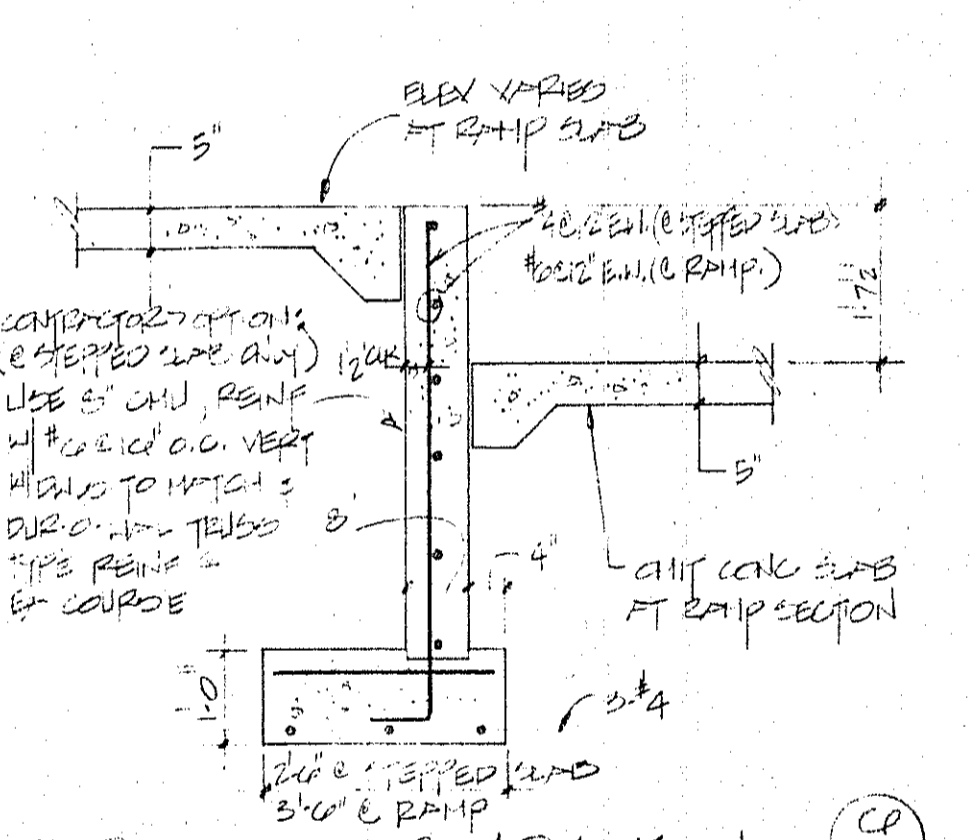 ELEV VARIES
AT RAMP SLAB
5"
#4@12 E.W. (@ STEPPED SLAB)
#6@12" E.W. (@ RAMP.)
CONTRACTORS OPTION:
(@ STEPPED SLAB ONLY)
USE 8" CMU, REINF
W/ #6@16" O.C. VERT
TO MATCH
DUR-O-WAL TRUSS
TYPE REINF
EA COURSE
1½"CLR
1'-7½"
5"
8"
4"
OMIT CONC SLAB
AT RAMP SECTION
1'-0"
3-#4
2'-6" @ STEPPED SLAB
3'-6" @ RAMP